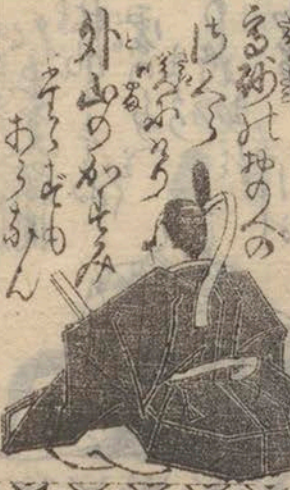 高砂のおのへの
さくら
咲にけり
外山のかすみ
たゝずも
あらなん